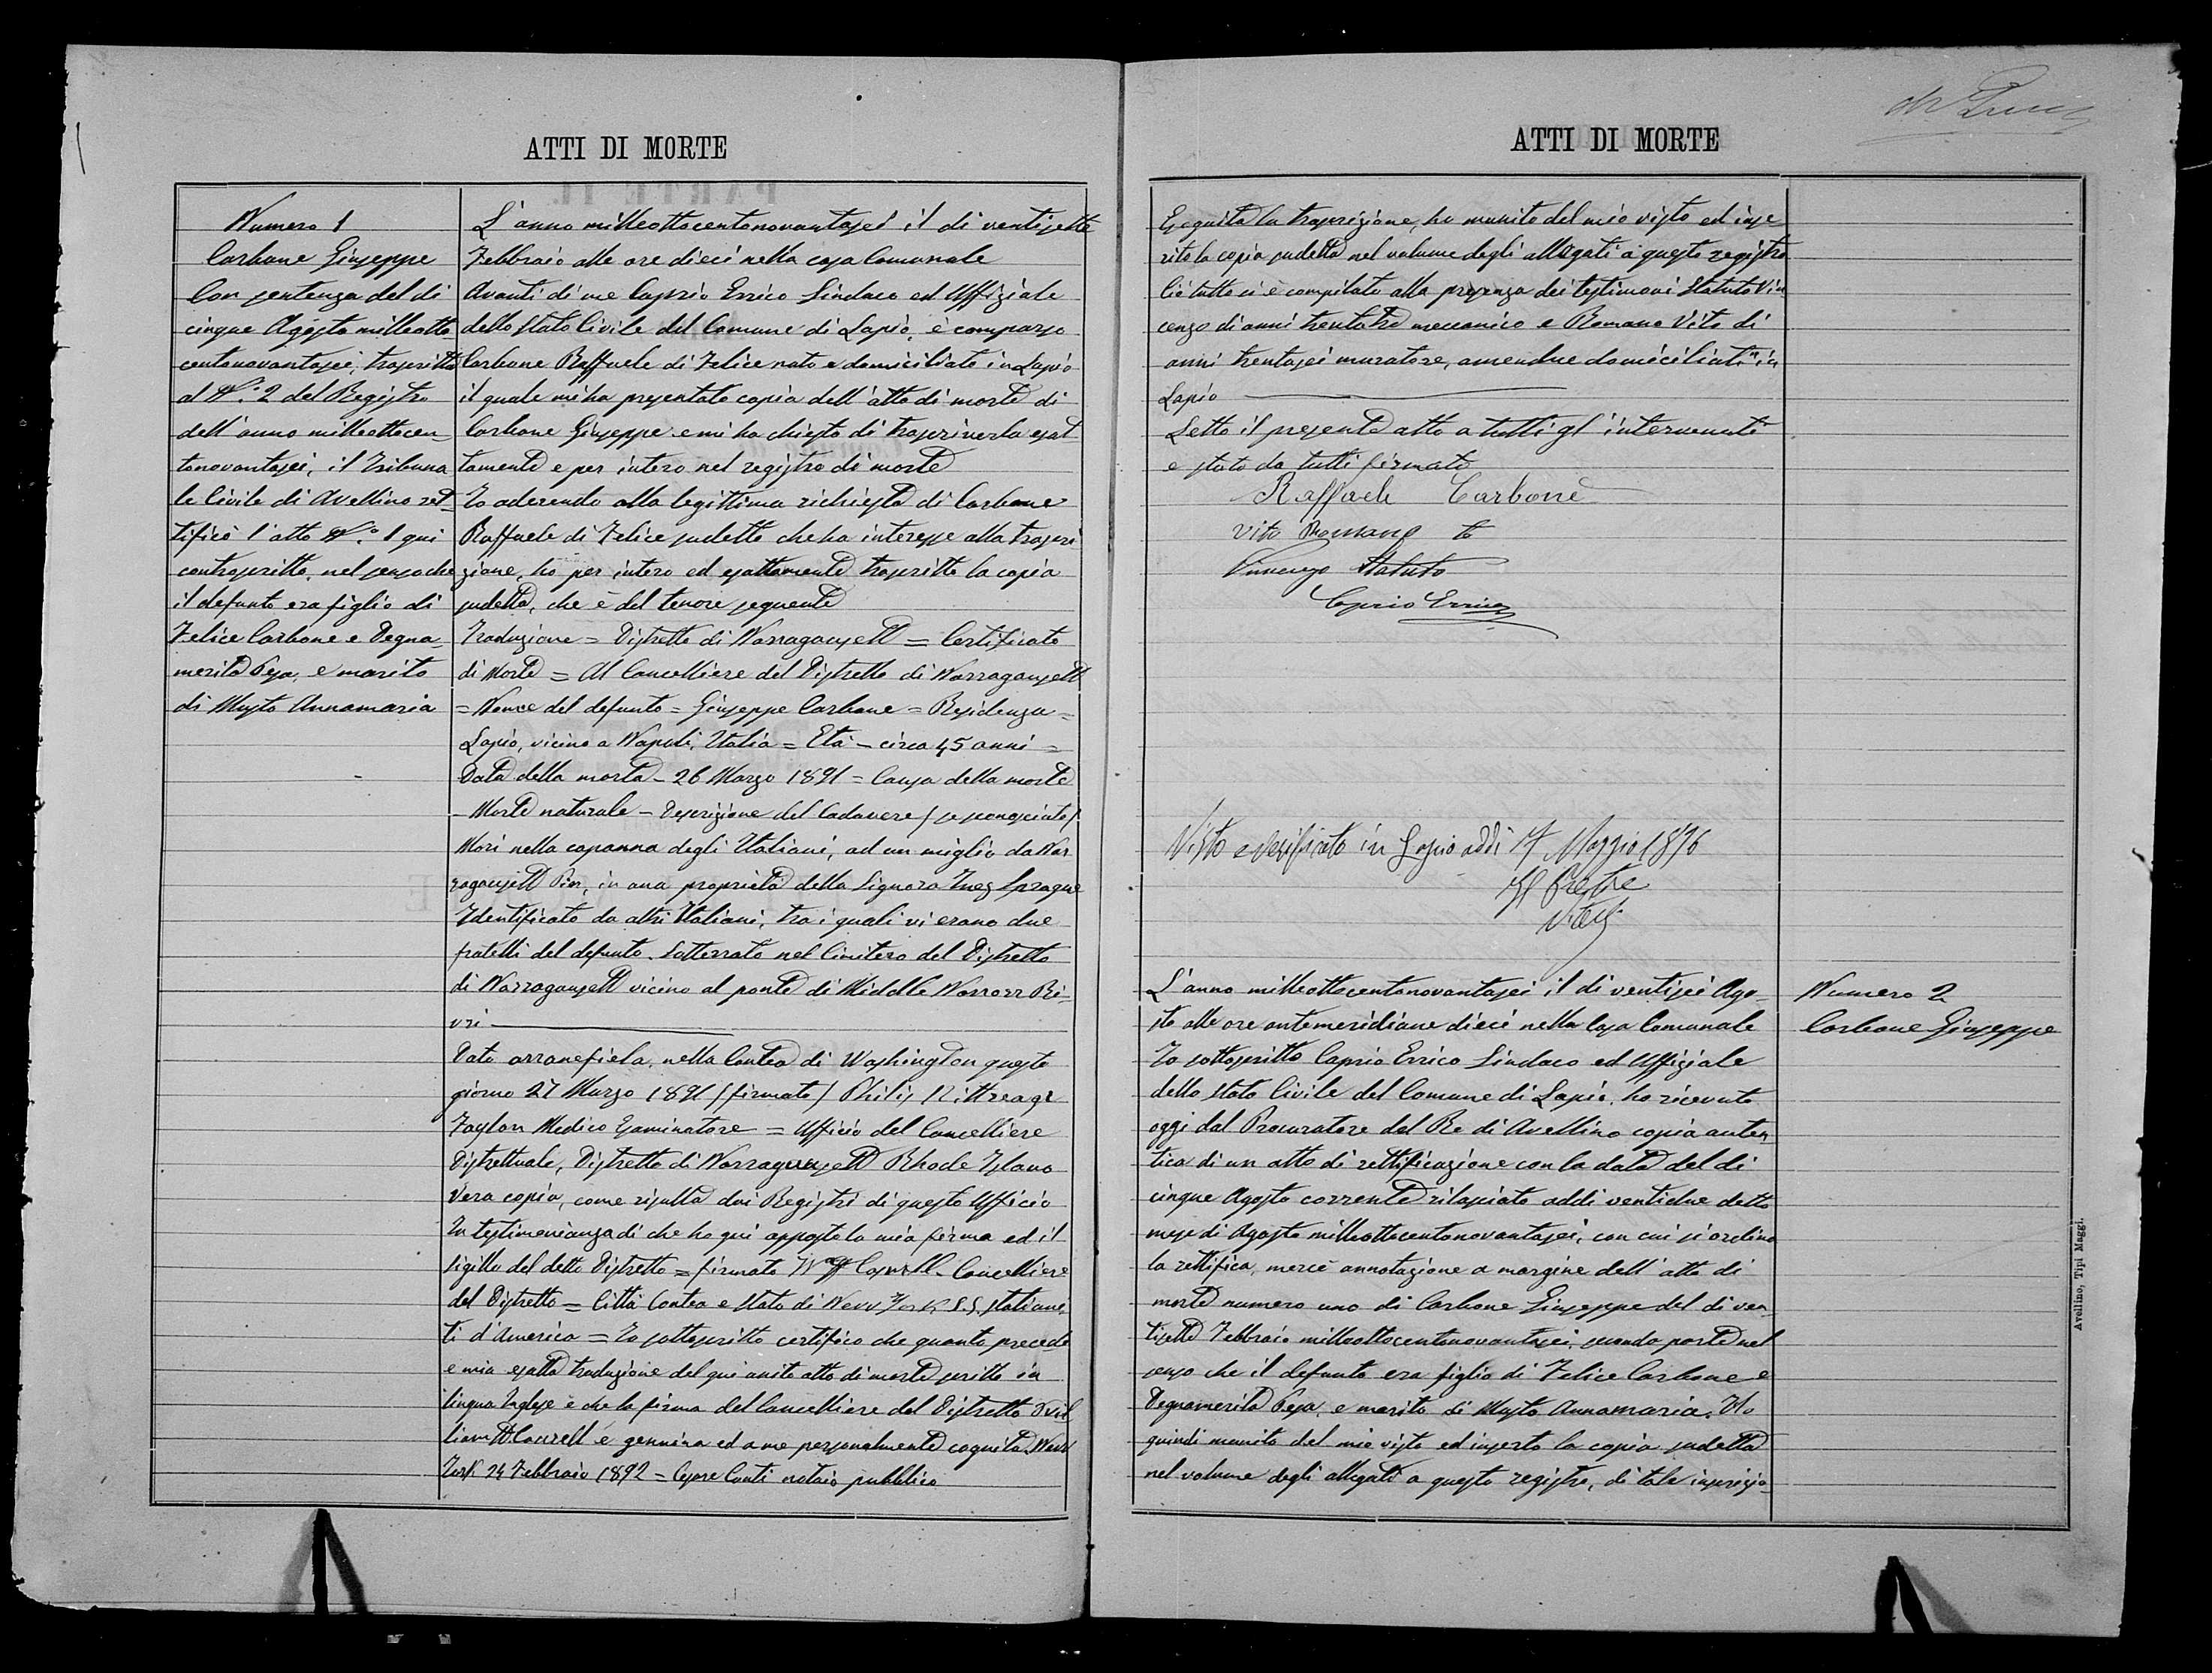 ATTI DI MORTE
Numero 1
Carbone Giuseppe
Con sentenza del di
cinque Agosto milleotto
centonovantasei, trascritta
al N.º 2 del Registro
dell'anno milleottocen
tonovantasei, il Tribuna
le Civile di Avellino ret
tificò l'atto N.º 1 qui
controscritto, nel senso che
il defunto era figlio di
Felice Carbone e Degna
merita Pesa, e marito
di Musto Annamaria
L'anno milleottocentonovantasei il di ventisette
Febbraio alle ore dieci nella casa Comunale
Avanti di me Caprio Errico Sindaco ed Uffiziale
dello Stato Civile del Comune di Lapio, è comparso
Carbone Raffaele di Felice nato e domiciliato in Lapio
il quale mi ha presentato copia dell'atto di morte di
Carbone Giuseppe e mi ha chiesto di trascriverla esat
tamente e per intero nel registro di morte
Io aderendo alla legittima richiesta di Carbone
Raffaele di Felice sudetto che ha interesse alla trascri
zione, ho per intero ed esattamente trascritto la copia
sudetta, che è del tenore seguente
Traduzione = Distretto di Narragansett = Certificato
di Morte = Al Cancelliere del Distretto di Narragansett
= Nome del defunto = Giuseppe Carbone = Residenza =
Lapio, vicino a Napoli, Italia = Età - circa 45 anni =
Data della morte - 26 Marzo 1891 = Causa della morte
- Morte naturale - Descrizione del Cadavere / se sconosciuto /
Morì nella capanna degli Italiani, ad un miglio da Nar
ragansett Pier, in una proprietà della Signora Inez Sprague
Identificato da altri Italiani, tra i quali vi erano due
fratelli del defunto. Sotterrato nel Cimitero del Distretto
di Narragansett vicino al ponte di Middle Narrorr Ri-
vri
Dato arranefiela, nella Contea di Washington questo
giorno 27 Marzo 1891 / firmato / Philip Kittreage
Taylon Medico Esaminatore = Ufficio del Cancelliere
Distrettuale, Distretto di Narragansett Rhode Islano
Vera copia, come risulta dai Registri di questo Ufficio
In testimonianza di che ho qui apposto la mia firma ed il
sigillo del detto Distretto = firmato Cancelliere
del Distretto = Città Contea e Stato di New York S.S. Stati uni
ti d'America = Io sottoscritto certifico che quanto precede
e mia esatta traduzione del qui unito atto di morte scritto in
lingua Inglese e che la firma del Cancelliere del Distretto Wil
liam è genuina ed a me personalmente cognita. New
York 24 Febbraio 1892 = Cesare Conti notaio pubblico
ATTI DI MORTE
Eseguita la trascrizione, ho munito del mio visto ed inse
rito la copia sudetta nel volume degli allegati a questo registro
Ciò tutto si è compilato alla presenza dei testimoni Statuto Vin
cenzo di anni trentatre meccanico e Romano Vito di
anni trentasei muratore, amendue domiciliati in
Lapio
Letto il presente atto a tutti gl'intervenuti
e stato da tutti firmato
Raffaele Carbone
Vito Romano
Vincenzo Statuto
Caprio Errico
Visto e verificato in Lapio addì 17 Maggio 1896
Il Pretore
L'anno milleottocentonovantasei il di ventisei Ago-
sto alle ore antemeridiane dieci nella Casa Comunale
Io sottoscritto Caprio Errico Sindaco ed Uffiziale
dello Stato Civile del Comune di Lapio, ho ricevuto
oggi dal Procuratore del Re di Avellino copia auten
tica di un atto di rettificazione con la data del di
cinque Agosto corrente rilasciato addì ventidue detto
mese di Agosto milleottocentonovantasei, con cui si ordina
la rettifica, mercè annotazione a margine dell'atto di
morte numero uno di Carbone Giuseppe del di ven-
tisette Febbraio milleottocentonovantasei, seconda parte nel
senso che il defunto era figlio di Felice Carbone e
Degnamerita Pesa, e marito di Musto Annamaria. Ho
quindi munito del mio visto ed inserto la copia sudetta
nel volume degli allegati a questo registro, di tale inscrizio-
Numero 2
Carbone Giuseppe
Avellino, Tipi Maggi.